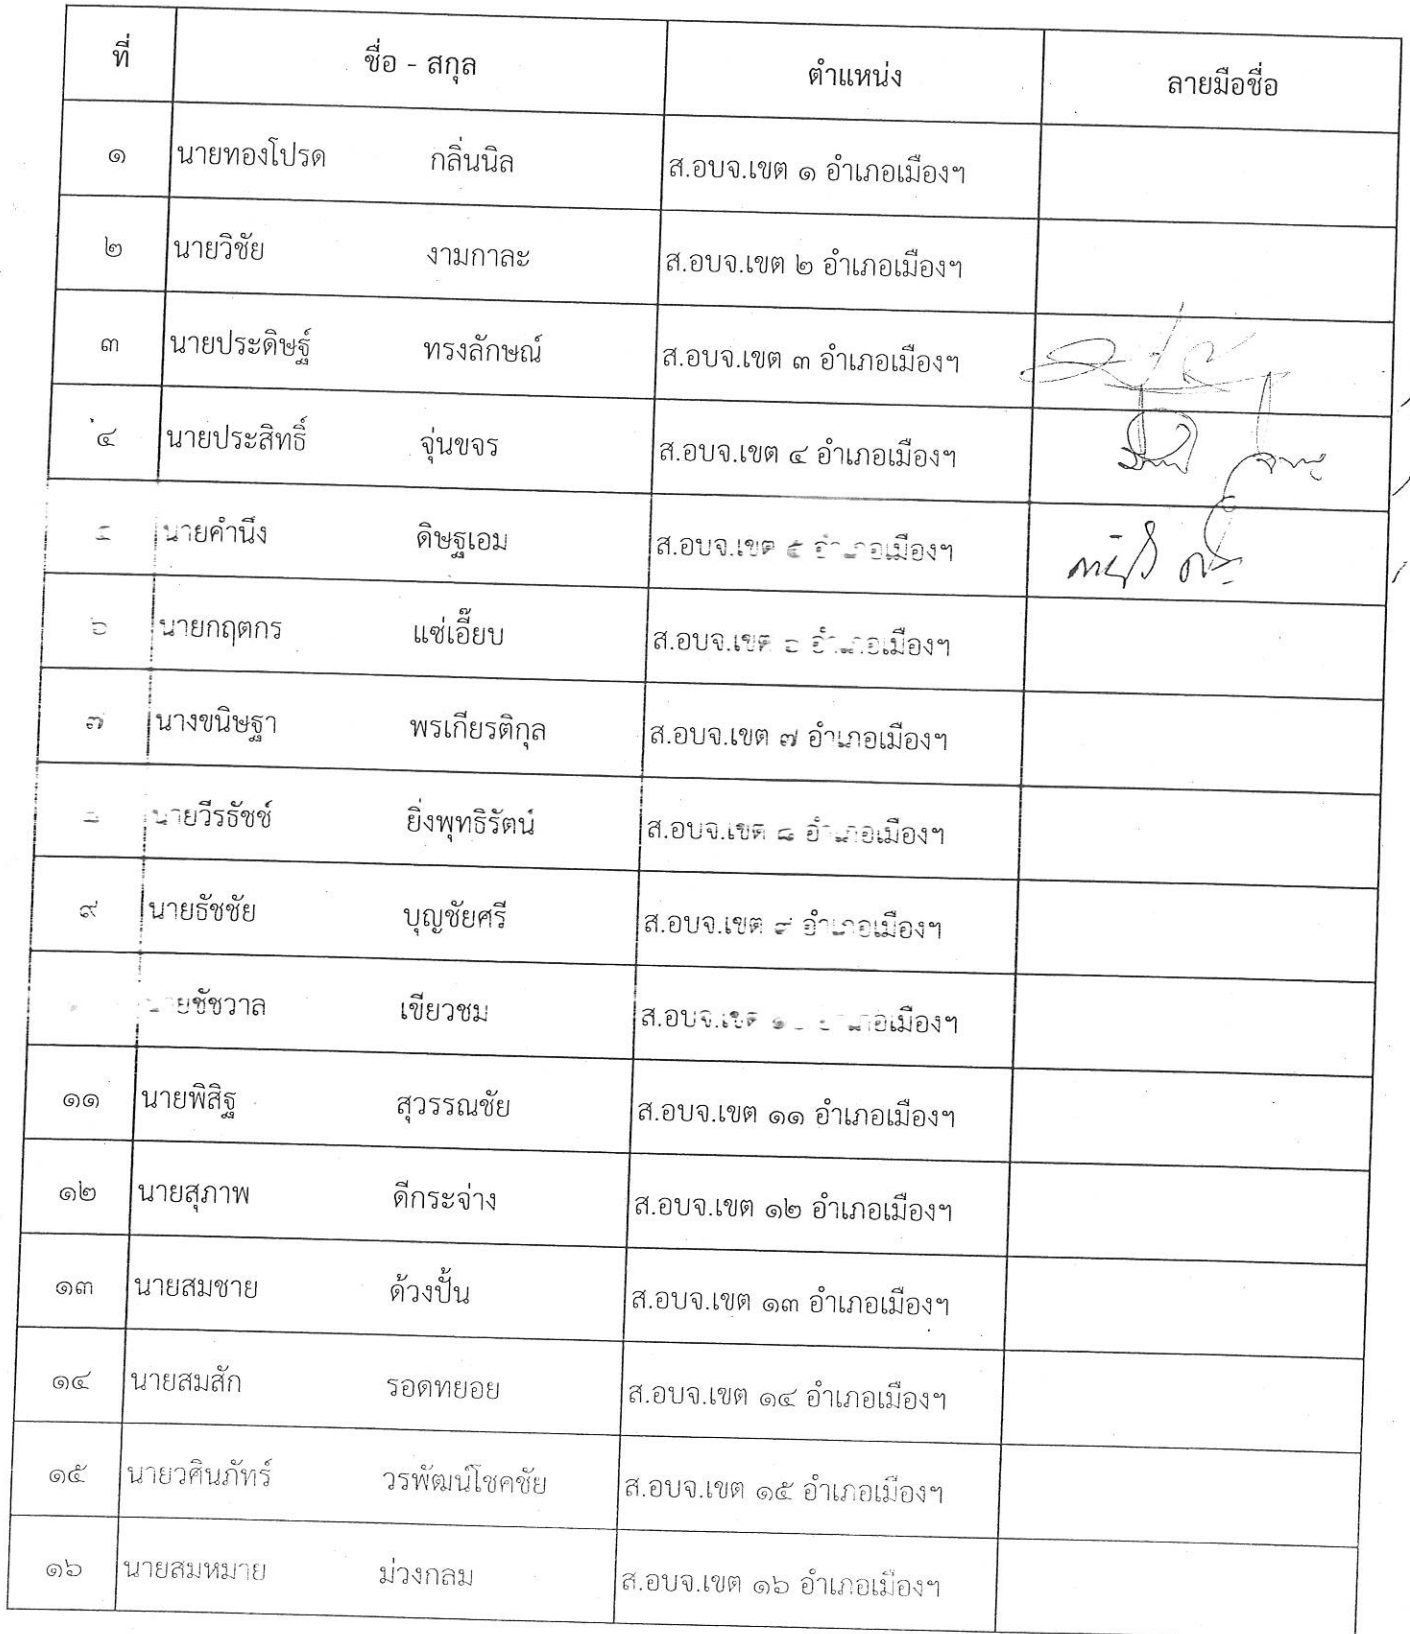 ที่ ชื่อ - สกุล ตำแหน่ง ลายมือชื่อ
๑ นายทองโปรด กลิ่นนิล ส.อบจ.เขต ๑ อำเภอเมืองฯ
๒ นายวิชัย งามกาละ ส.อบจ.เขต ๒ อำเภอเมืองฯ
๓ นายประดิษฐ์ ทรงลักษณ์ ส.อบจ.เขต ๓ อำเภอเมืองฯ
๔ นายประสิทธิ์ จุ่นขจร ส.อบจ.เขต ๔ อำเภอเมืองฯ
๕ นายคำนึง ดิษฐเอม ส.อบจ.เขต ๕ อำเภอเมืองฯ
๖ นายกฤตกร แซ่เอี๊ยบ ส.อบจ.เขต ๖ อำเภอเมืองฯ
๗ นางขนิษฐา พรเกียรติกุล ส.อบจ.เขต ๗ อำเภอเมืองฯ
๘ นายวีรธัชช์ ยิ่งพุทธิรัตน์ ส.อบจ.เขต ๘ อำเภอเมืองฯ
๙ นายธัชชัย บุญชัยศรี ส.อบจ.เขต ๙ อำเภอเมืองฯ
นายชัชวาล เขียวชม ส.อบจ.เขต ๑๐ อำเภอเมืองฯ
๑๑ นายพิสิฐ สุวรรณชัย ส.อบจ.เขต ๑๑ อำเภอเมืองฯ
๑๒ นายสุภาพ ดีกระจ่าง ส.อบจ.เขต ๑๒ อำเภอเมืองฯ
๑๓ นายสมชาย ด้วงปั้น ส.อบจ.เขต ๑๓ อำเภอเมืองฯ
๑๔ นายสมสัก รอดทยอย ส.อบจ.เขต ๑๔ อำเภอเมืองฯ
๑๕ นายวศินภัทร์ วรพัฒน์โชคชัย ส.อบจ.เขต ๑๕ อำเภอเมืองฯ
๑๖ นายสมหมาย ม่วงกลม ส.อบจ.เขต ๑๖ อำเภอเมืองฯ